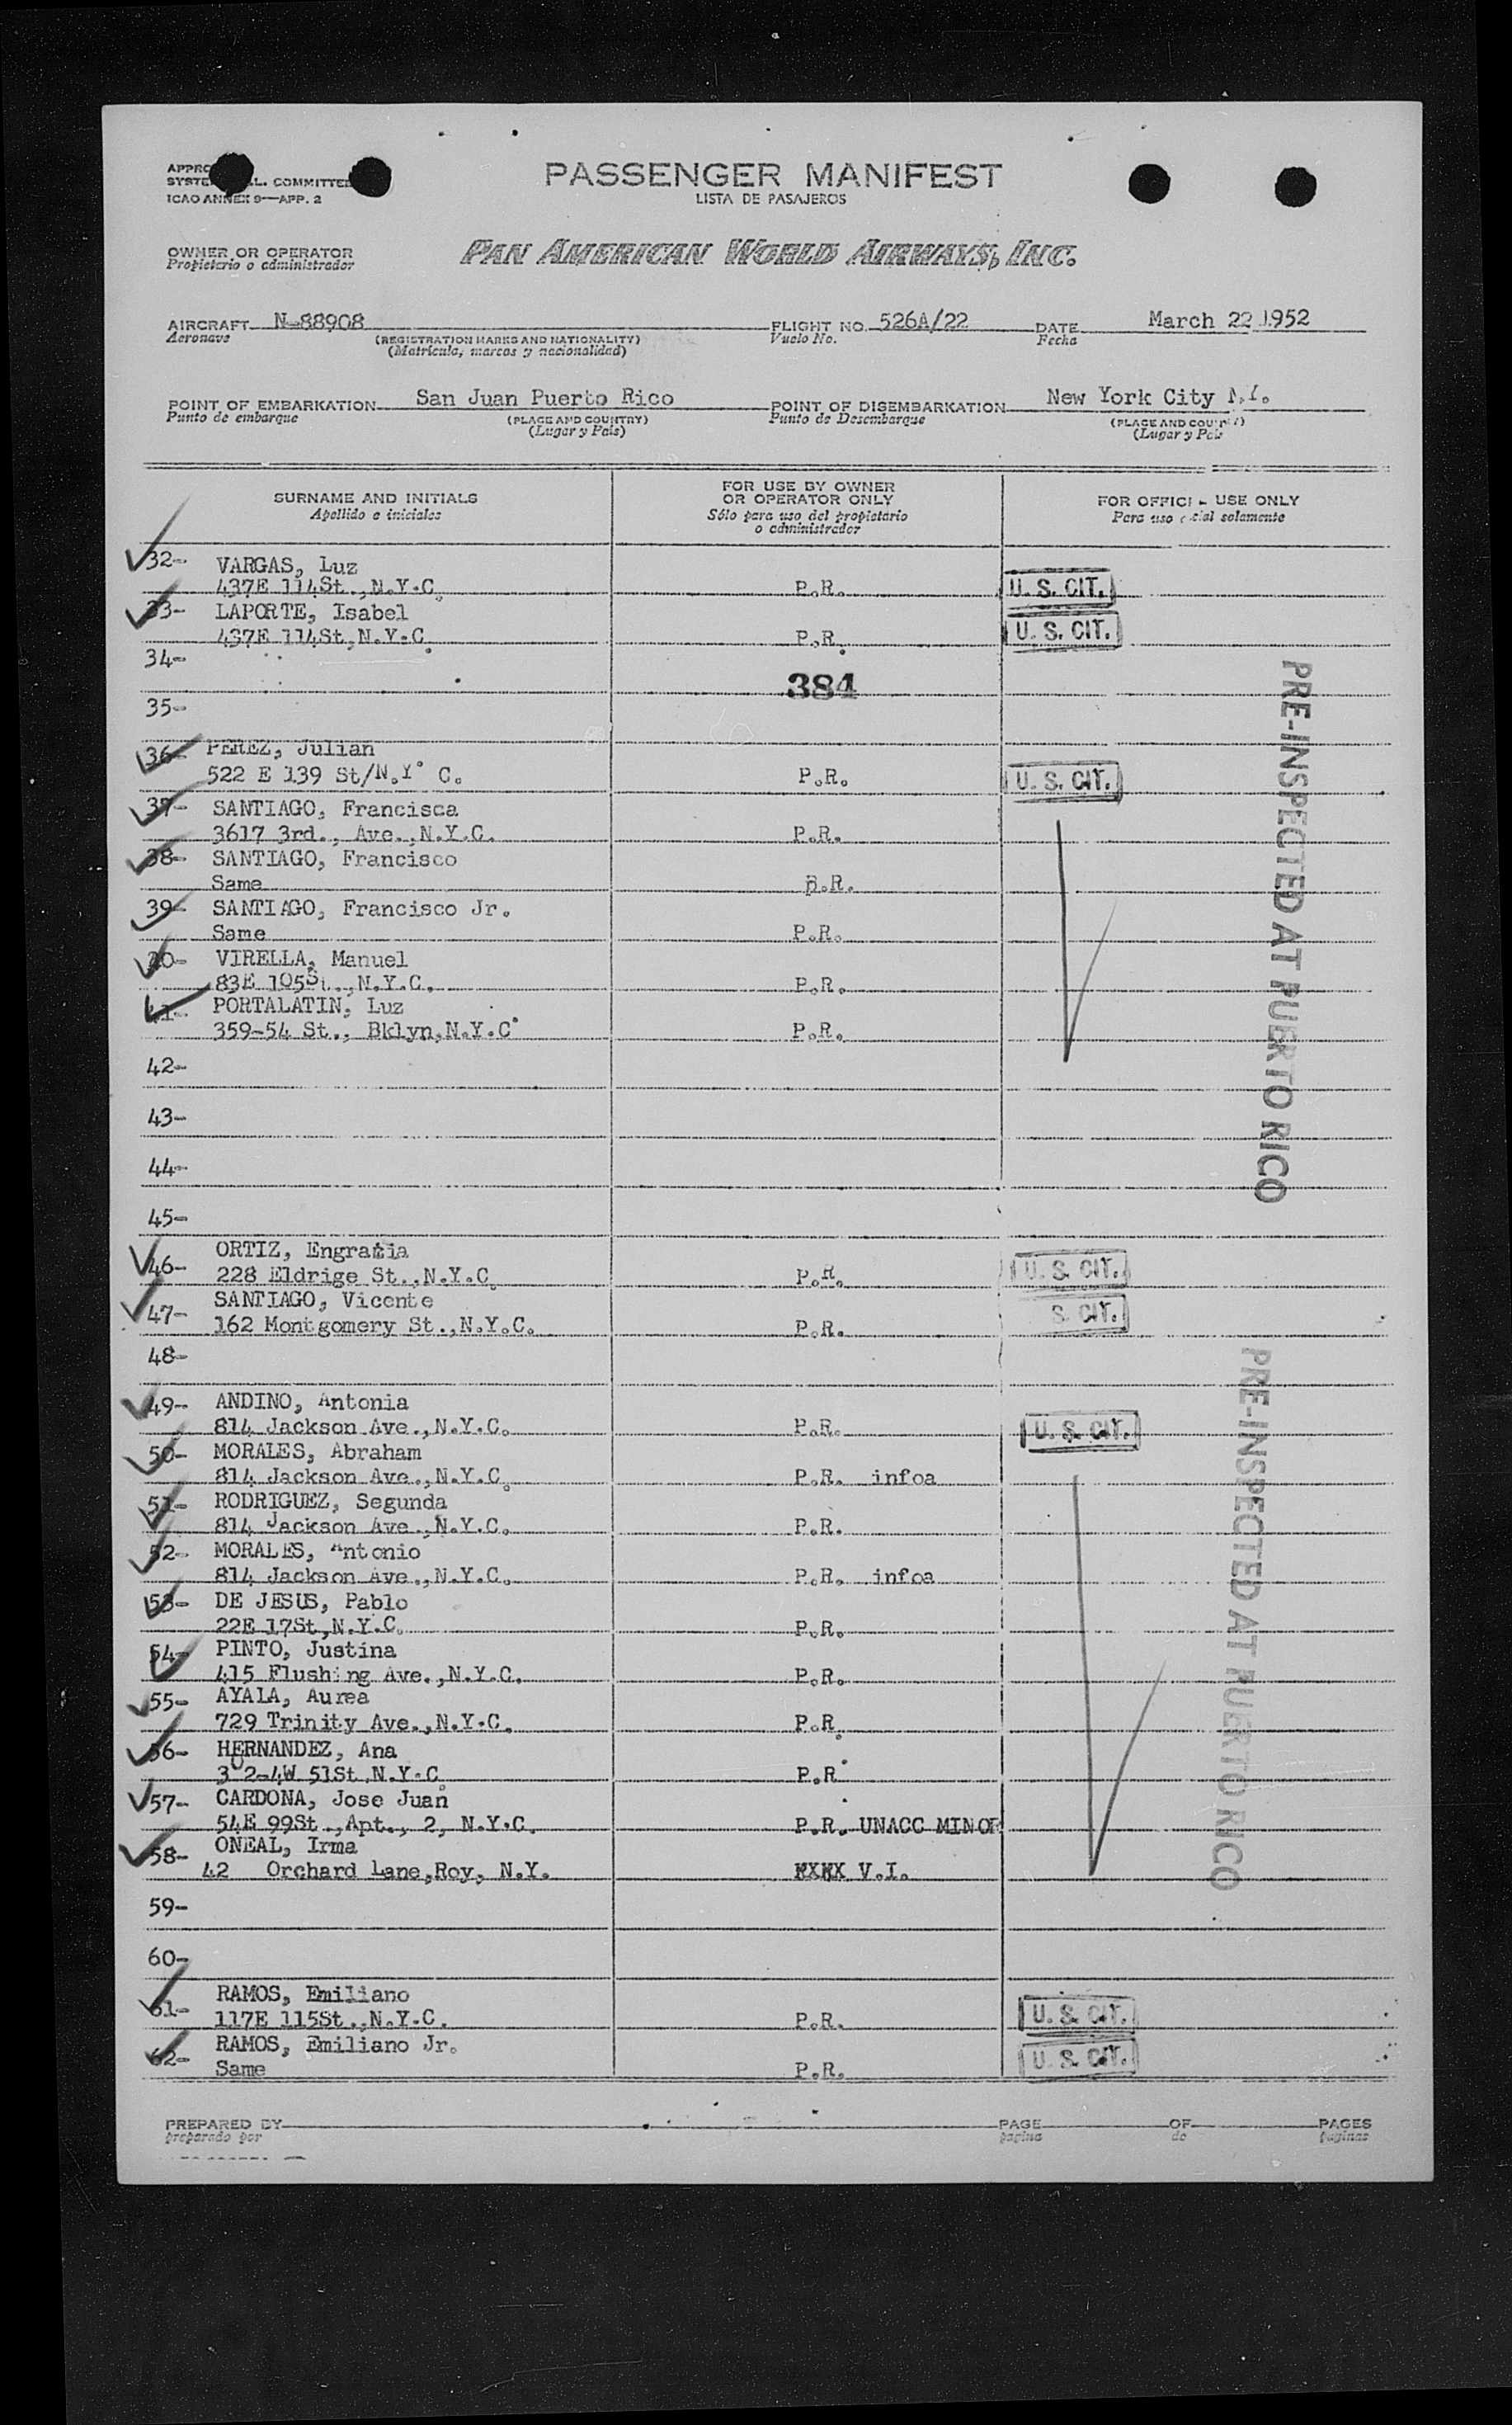 PASSENGER MANIFEST
LISTA DE PASAJEROS
SYSTE L. COMMITTEE
ICAO ANNEX 9—APP. 2
OWNER OR OPERATOR
Propietario o administrador
PAN AMERICAN WORLD AIRWAYS, INC.
AIRCRAFT N-88908 FLIGHT NO. 526A/22 DATE March 22 1952
Aeronave (REGISTRATION MARKS AND NATIONALITY) Vuelo No. Fecha
(Matricula, marcas y nacionalidad)
POINT OF EMBARKATION San Juan Puerto Rico POINT OF DISEMBARKATION New York City N.Y.
Punto de embarque (PLACE AND COUNTRY) Punto de Desembarque (PLACE AND COUNTRY)
(Lugar y País) (Lugar y País
SURNAME AND INITIALS FOR USE BY OWNER OR OPERATOR ONLY FOR OFFICI L USE ONLY
Apellido e iniciales Sólo para uso del propietario o administrador Para uso cial solamente
32- VARGAS, Luz
437E 114St.,N.Y.C. P.R. U. S. CIT.
33- LAPORTE, Isabel
437E 114St,N.Y.C. P.R. U. S. CIT.
34-
384
35-
36- PEREZ, Julian
522 E 139 St/N.Y. C. P.R. U. S. CIT.
37- SANTIAGO, Francisca
3617 3rd., Ave.,N.Y.C. P.R.
38- SANTIAGO, Francisco
Same P.R.
39- SANTIAGO, Francisco Jr.
Same P.R.
40- VIRELLA, Manuel
83E 105St.,N.Y.C. P.R.
41- PORTALATIN, Luz
359-54 St., Bklyn,N.Y.C. P.R.
PRE-INSPECTED AT PUERTO RICO
42-
43-
44-
45-
46- ORTIZ, Engracia
228 Eldrige St.,N.Y.C. P.R. U. S. CIT.
47- SANTIAGO, Vicente
162 Montgomery St.,N.Y.C. P.R. S. CIT.
48-
49- ANDINO, Antonia
814 Jackson Ave.,N.Y.C. P.R. U. S. CIT.
50- MORALES, Abraham
814 Jackson Ave.,N.Y.C. P.R. infoa
51- RODRIGUEZ, Segunda
814 Jackson Ave.,N.Y.C. P.R.
52- MORALES, Antonio
814 Jackson Ave.,N.Y.C. P.R. infoa
53- DE JESUS, Pablo
22E 17St,N.Y.C. P.R.
54- PINTO, Justina
415 Flushing Ave.,N.Y.C. P.R.
55- AYALA, Aurea
729 Trinity Ave.,N.Y.C. P.R.
56- HERNANDEZ, Ana
302-4W 51St,N.Y.C. P.R.
57- CARDONA, Jose Juan
54E 99St.,Apt., 2, N.Y.C. P.R. UNACC MINOR
58- ONEAL, Irma
42 Orchard Lane,Roy, N.Y. V.I.
PRE-INSPECTED AT PUERTO RICO
59-
60-
61- RAMOS, Emiliano
117E 115St.,N.Y.C. P.R. U. S. CIT.
62- RAMOS, Emiliano Jr.
Same P.R. U. S. CIT.
PREPARED BY PAGE OF PAGES
preparado por pagina de paginas